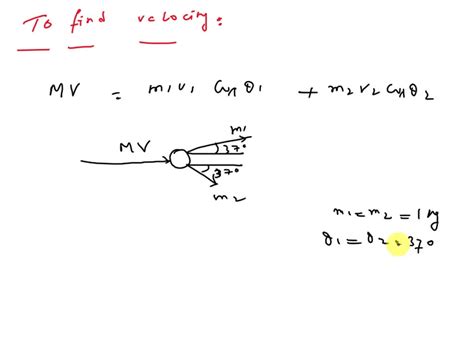 To find velocity:
MV = m1v1 Cos θ1 + m2v2 Cos θ2
m1
MV
37°
37°
m2
m1 = m2 = 1 kg
θ1 = θ2 = 37°